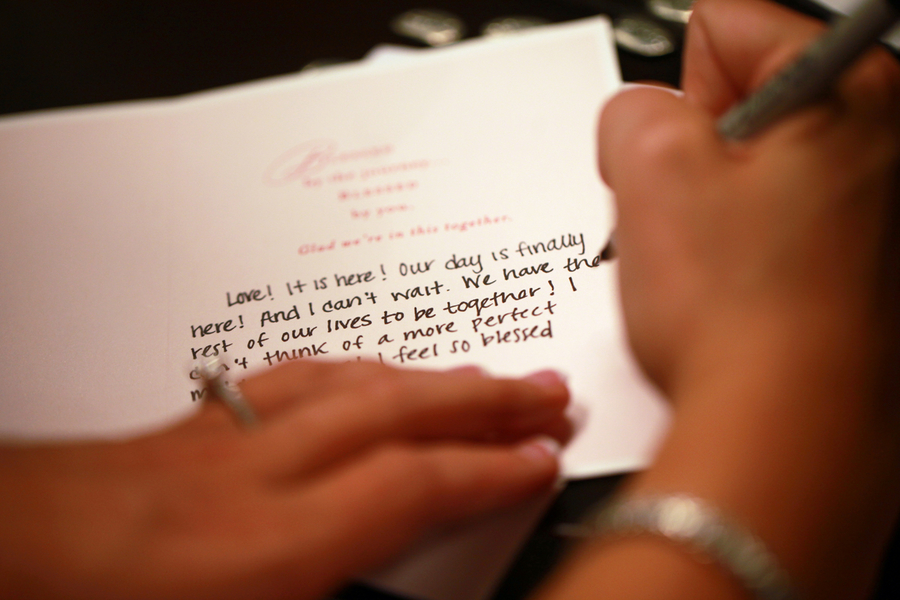 to the
Blessed
by you.
Glad we're in this together.
Love! It is here! Our day is finally
here! And I can't wait. We have the
rest of our lives to be together! I
can't think of a more perfect
I feel so blessed